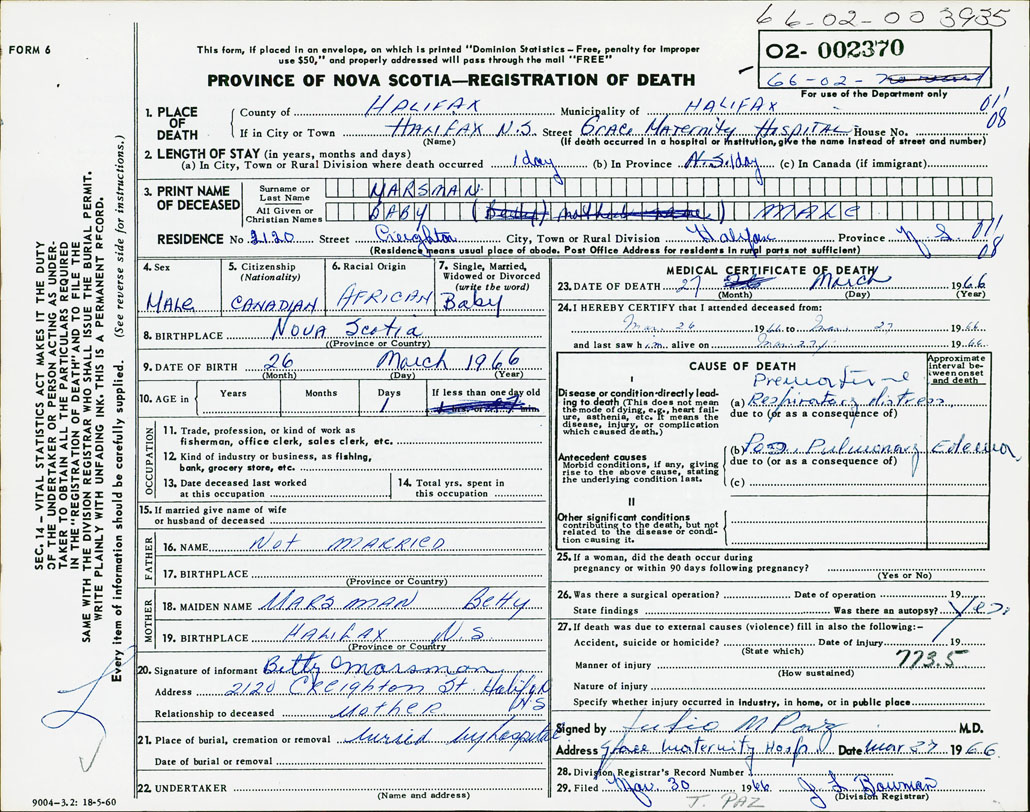 66-02-00 3935
FORM 6
This form, if placed in an envelope, on which is printed "Dominion Statistics – Free, penalty for improper
use $50," and properly addressed will pass through the mail "FREE"
02- 002370
66-02-
For use of the Department only
PROVINCE OF NOVA SCOTIA—REGISTRATION OF DEATH
1. PLACE OF DEATH
County of HALIFAX Municipality of HALIFAX 011
If in City or Town HALIFAX N.S. Street Grace Maternity Hospital House No. 08
(Name) (If death occurred in a hospital or institution, give the name instead of street and number)
2. LENGTH OF STAY (in years, months and days)
(a) In City, Town or Rural Division where death occurred 1 day (b) In Province N.S. 1 day (c) In Canada (if immigrant)
3. PRINT NAME OF DECEASED
Surname or Last Name MARSMAN
All Given or Christian Names BABY (Betty) MALE
RESIDENCE No. 2120 Street Creighton City, Town or Rural Division Halifax Province N.S. 011
08
(Residence means usual place of abode. Post Office Address for residents in rural parts not sufficient)
4. Sex MALE
5. Citizenship (Nationality) CANADIAN
6. Racial Origin AFRICAN
7. Single, Married, Widowed or Divorced (write the word) Baby
8. BIRTHPLACE NOVA Scotia
(Province or Country)
9. DATE OF BIRTH 26 March 1966
(Month) (Day) (Year)
10. AGE in Years Months Days 1 If less than one day old
hrs. or min.
OCCUPATION
11. Trade, profession, or kind of work as
fisherman, office clerk, sales clerk, etc.
12. Kind of industry or business, as fishing,
bank, grocery store, etc.
13. Date deceased last worked
at this occupation
14. Total yrs. spent in
this occupation
15. If married give name of wife
or husband of deceased
FATHER
16. NAME Not MARRIED
17. BIRTHPLACE
(Province or Country)
MOTHER
18. MAIDEN NAME MARSMAN Betty
19. BIRTHPLACE HALIFAX N.S.
(Province or Country)
20. Signature of informant Betty Marsman
Address 2120 Creighton St. Halifax NS
Relationship to deceased Mother
21. Place of burial, cremation or removal buried by hospital
Date of burial or removal
22. UNDERTAKER
(Name and address)
MEDICAL CERTIFICATE OF DEATH
23. DATE OF DEATH 27 March 1966
(Month) (Day) (Year)
24. I HEREBY CERTIFY that I attended deceased from
Mar. 26 1966 to Mar. 27 1966
and last saw him alive on Mar. 27 1966
CAUSE OF DEATH
Approximate interval between onset and death
I
Disease or condition directly leading to death (This does not mean the mode of dying, e.g., heart failure, asthenia, etc. It means the disease, injury, or complication which caused death.)
Premature
(a) Respiratory distress
due to (or as a consequence of)
Antecedent causes
Morbid conditions, if any, giving rise to the above cause, stating the underlying condition last.
(b) Pulmonary Edema
due to (or as a consequence of)
(c)
II
Other significant conditions
contributing to the death, but not related to the disease or condition causing it.
25. If a woman, did the death occur during
pregnancy or within 90 days following pregnancy?
(Yes or No)
26. Was there a surgical operation? Date of operation 19
State findings Was there an autopsy? Yes
27. If death was due to external causes (violence) fill in also the following:–
Accident, suicide or homicide? Date of injury 19
(State which)
773.5
Manner of injury
(How sustained)
Nature of injury
Specify whether injury occurred in industry, in home, or in public place
Signed by Julio M Paz M.D.
Address Grace Maternity Hosp Date Mar 27 1966
28. Division Registrar's Record Number
29. Filed Mar. 30 1966 J L Bowman
(Division Registrar)
J. PAZ
SEC. 14 – VITAL STATISTICS ACT MAKES IT THE DUTY
OF THE UNDERTAKER OR PERSON ACTING AS UNDER-
TAKER TO OBTAIN ALL THE PARTICULARS REQUIRED
IN THE "REGISTRATION OF DEATH" AND TO FILE THE
SAME WITH THE DIVISION REGISTRAR WHO SHALL ISSUE THE BURIAL PERMIT.
WRITE PLAINLY WITH UNFADING INK. THIS IS A PERMANENT RECORD.
Every item of information should be carefully supplied. (See reverse side for instructions.)
9004-3.2: 18-5-60